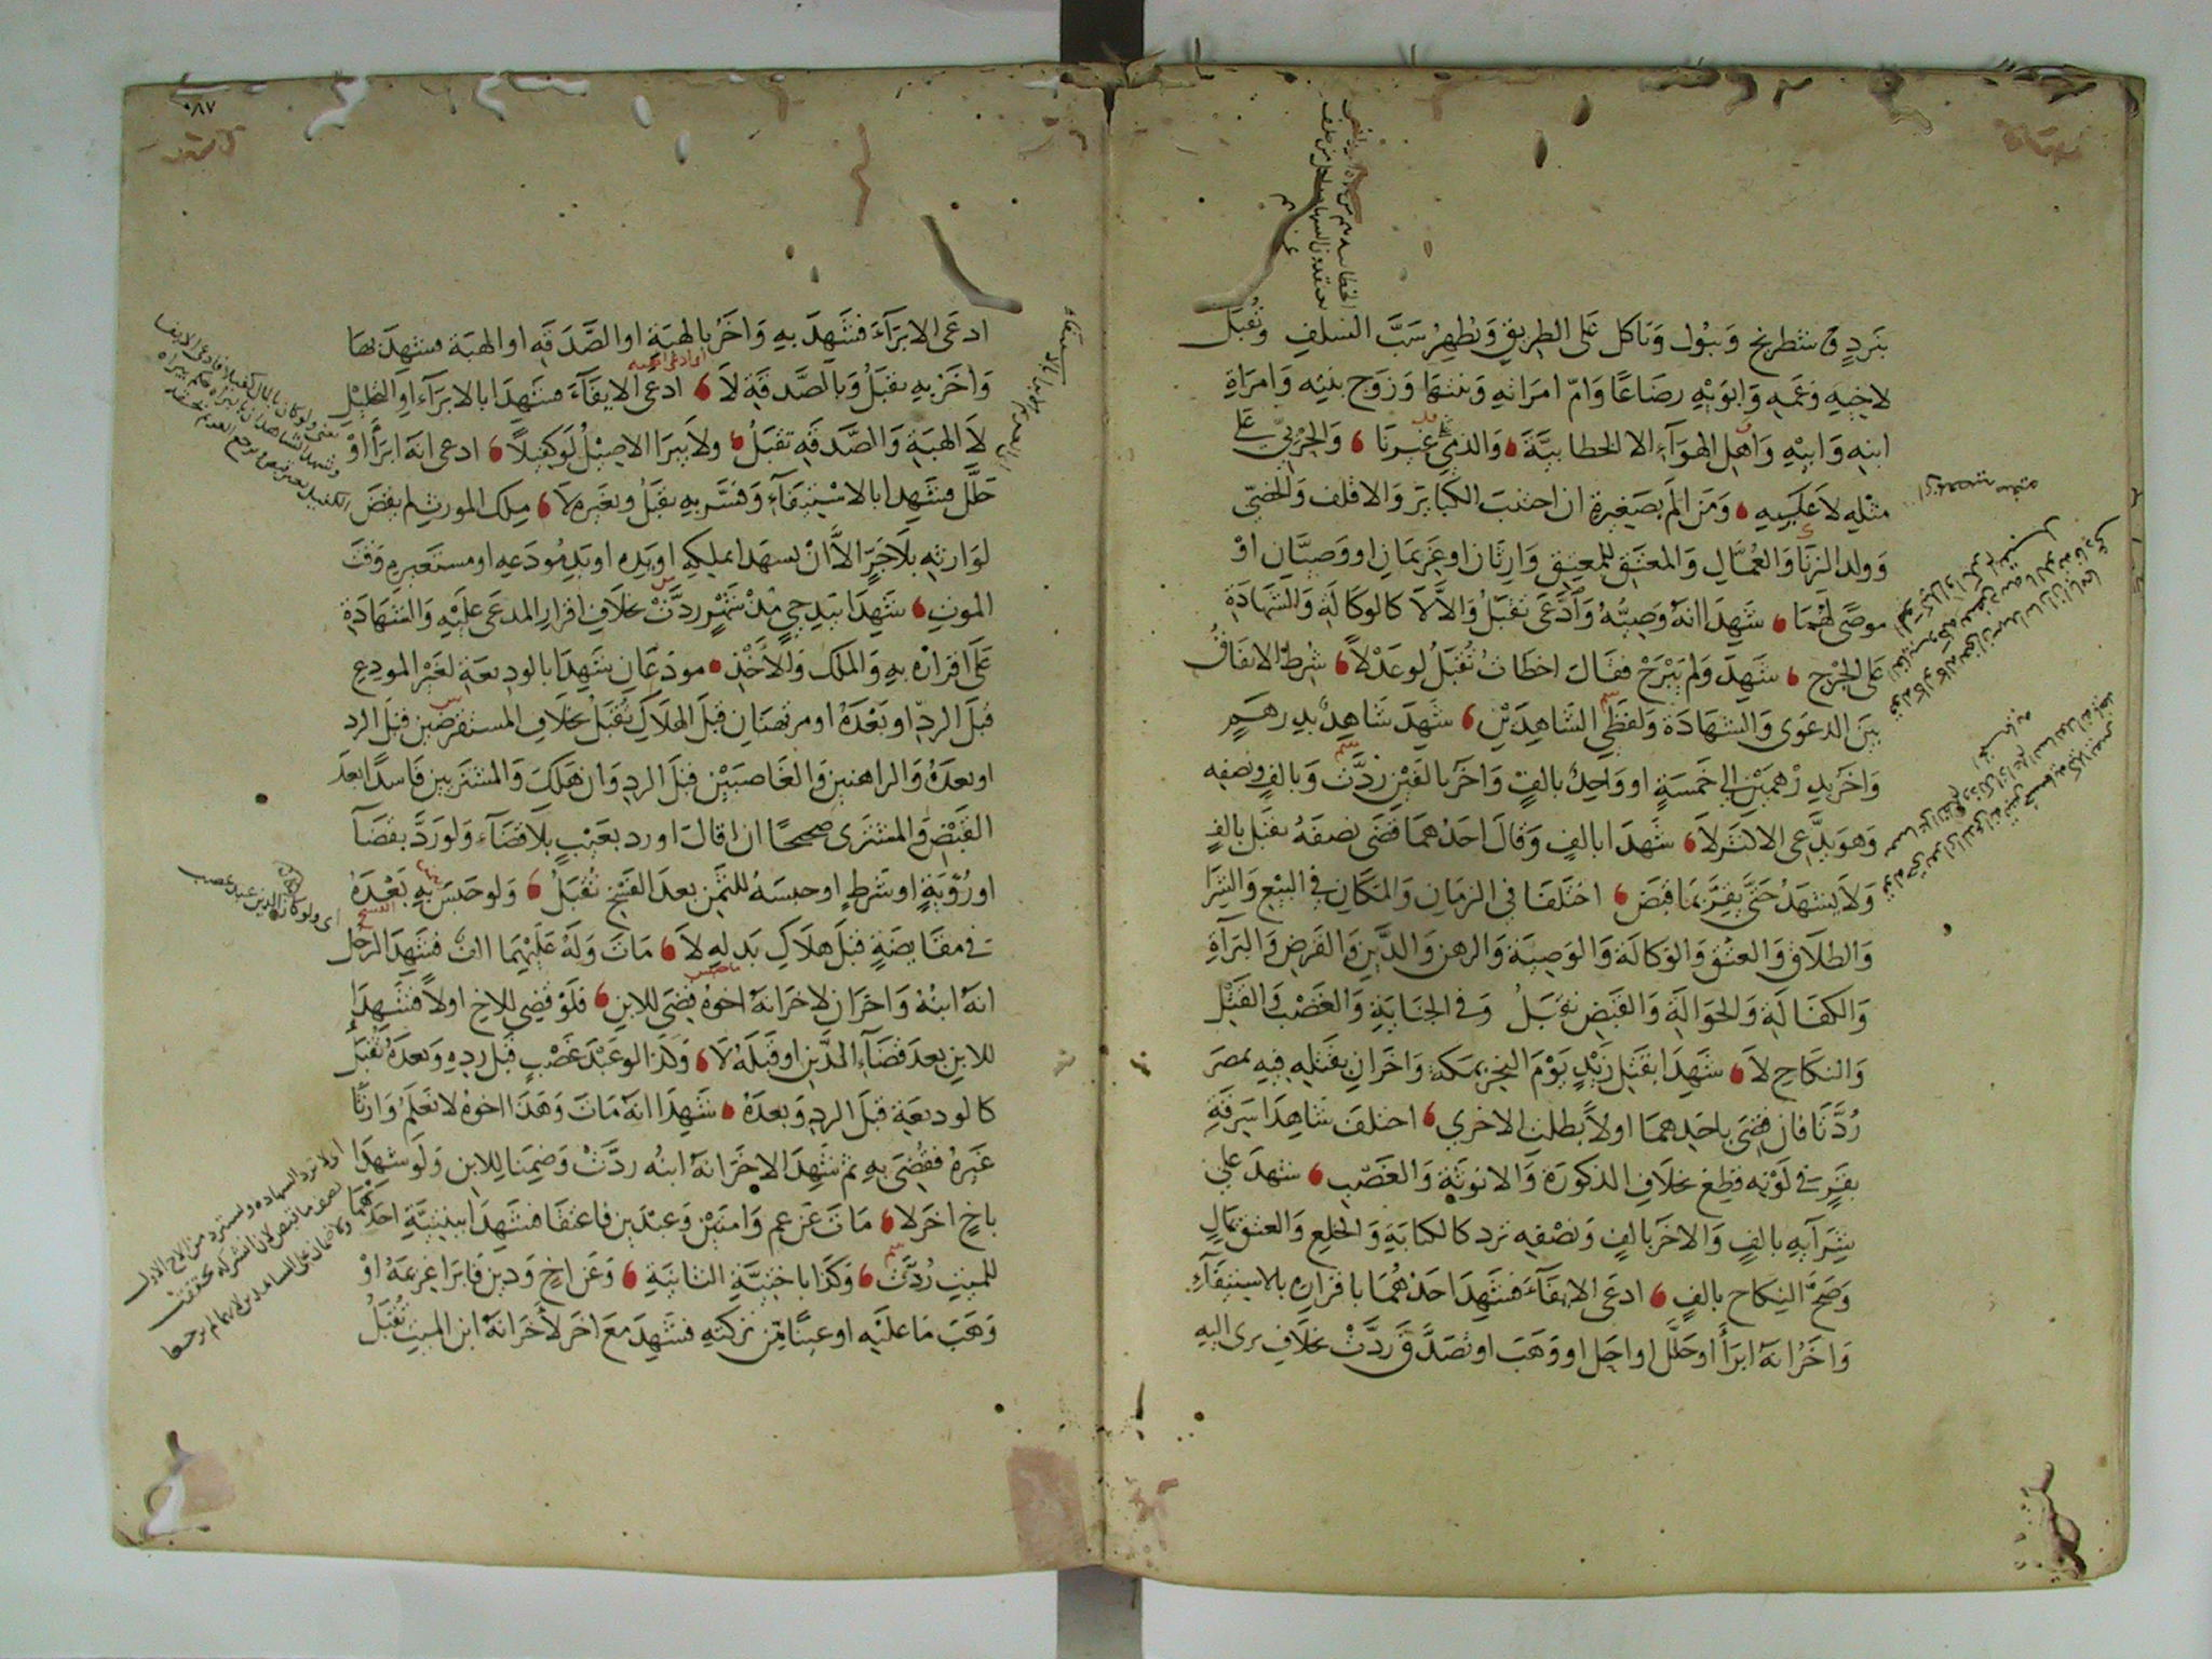 بنرد و شطرنج ويبول وياكل على الطريق ويظهر سب السلف وتقبل
لاخيه وعمه وابويه رضاعا وام امراته وبنتها وزوج بنته وامراة
ابنه وابيه واهل الهوآء الا الخطابية والذمي على غيرنا والحربي على
مثله لا عكسه ومن الم بصغيرة ان اجتنب الكبائر والاقلف والخصي
وولد الزنا والعمال والمعتق للمعتق وارثان او غريمان او وصيان او
موصى لهما شهدا انه وصيه وادعى تقبل والا لا كالوكالة والشهادة
على الجرح شهد ولم يبرح فقال اخطات تقبل لو عدلا شرط الاتفاق
بين الدعوى والشهادة ولفظي الشاهدين شهد شاهد بدرهم
واخر بدرهمين الى خمسة او واحد بالف واخر بالفين ردت وبالف ونصفه
وهو يدعى الاكثر لا شهدا بالف وقال احدهما قضى نصفه تقبل بالف
ولا يشهد حتى يقر بما قبض اختلفا في الزمان والمكان في البيع والشرا
والطلاق والعتق والوكالة والوصية والرهن والدين والقرض والبرآة
والكفالة والحوالة والقبض تقبل وفي الجناية والغصب والقتل
والنكاح لا شهدا بقتل زيد يوم النحر بمكة واخران بقتله فيه بمصر
ردتا فان قضى باحدهما اولا بطلت الاخرى اختلف شاهدا سرقة
بقر في لونه قطع بخلاف الذكورة والانوثة والغصب شهد على
شرآيه بالف والاخر بالف ونصفه ترد كالكتابة والخلع والعتق بمال
وصح النكاح بالف ادعى الايفآء فشهد احدهما باقراره بالاستيفآء
واخر انه ابرأ او حلل او احل او وهب او تصدق ردت بخلاف برى اليه
٠٨٧
ادعى الابرآء فشهد به واخر بالهبة او الصدقة او الهبة فشهد بها
واخر به تقبل وبالصدقة لا ادعى الايفآء فشهدا بالابرآء او التحليل
لا الهبة والصدقة تقبل ولا يبرا الاصيل لو كفيلا ادعى انه ابرأ او
حلل فشهدا بالاستيفآء وفسر به تقبل وبغيره لا ملك المورث لم يقض
لوارثه بلا جر الا ان يشهدا بملكه او يده او يد مودعه او مستعيره وقت
الموت شهدا بيد حي مذ شهر ردت بخلاف اقرار المدعى عليه والشهادة
على اقراره به والملك والاخذ مودعان شهدا بالوديعة لغير المودع
قبل الرد او بعده او مرتهنان قبل الهلاك تقبل بخلاف المستقرضين قبل الرد
او بعده والراهنين والغاصبين قبل الرد وان هلك والمشتريين فاسدا بعد
القبض والمشترى صحيحا ان اقال او رد بعيب بلا قضآء ولو رد بقضآ
او رؤية او شرط او حبسه للثمن بعد الفسخ تقبل ولو حبس به بعده
في مقايضة قبل هلاك بدله لا مات وله عليهما الف فشهد الرجل
انه ابنه واخران لاخر انه اخوه قضى للابن فلو قضى للاخ اولا فشهدا
للابن بعد قضآء الدين او قبله لا وكذا لو عبد غصب قبل رده وبعده تقبل
كالوديعة قبل الرد وبعده شهدا انه مات وهذا اخوه لا نعلم وارثا
غيره فقضى به ثم شهدا لاخر انه ابنه ردت وضمنا للابن ولو شهدا
باخ اخر لا مات عن عم وامتين وعبدين فاعتقا فشهدا ببنتية احدهما
للميت ردت وكذا باختية الثانية وعن اخ ودين فابرا غريمه او
وهب ما عليه او عينا من تركته فشهد مع اخر لاخر انه ابن الميت تقبل